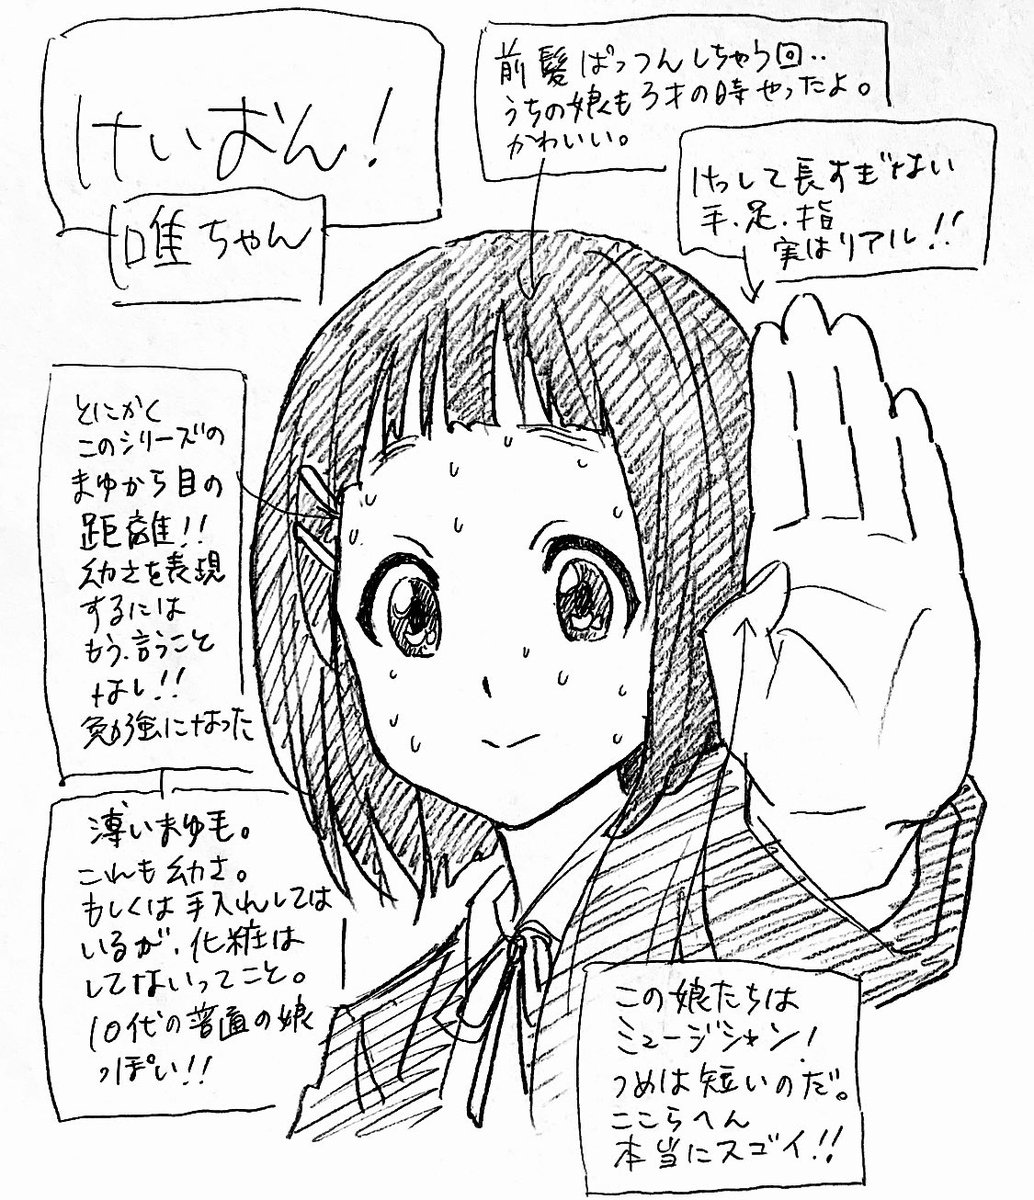 けいおん!
唯ちゃん
前髪ぱっつんしちゃう回‥
うちの娘も3才の時やったよ。
かわいい。
けっして長すぎない
手、足、指
実はリアル!!
とにかく
このシリーズの
まゆから目の
距離!!
幼さを表現
するには
もう、言うこと
なし!!
勉強になった
薄いまゆ毛。
これも幼さ。
もしくは手入れしては
いるが、化粧は
してないってこと。
10代の普通の娘
っぽい!!
この娘たちは
ミュージシャン!
つめは短いのだ。
ここらへん
本当にスゴイ!!